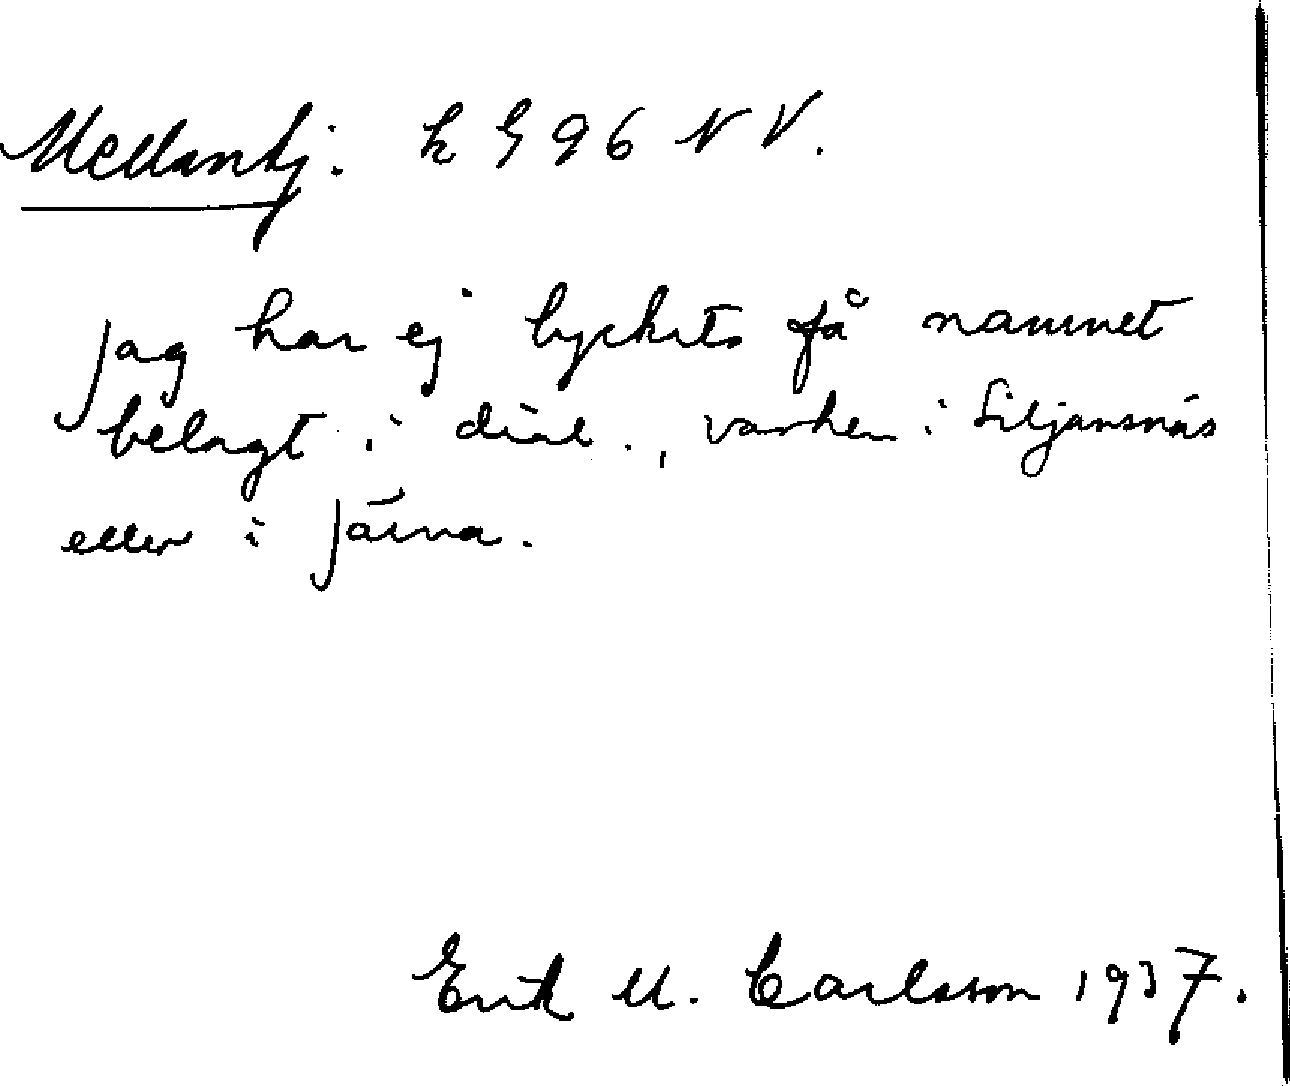 Mellantj: k G 96 NV.
Jag har ej lyckats få namnet
belagt i dial., varken i Siljansnäs
eller i Järna.
Erik M. Carlsson 1937.